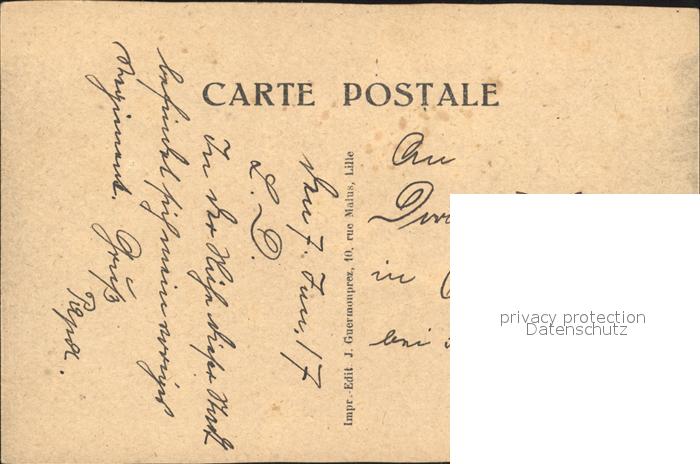 CARTE POSTALE
den 7. Jun. 17
L. D.
In der Nähe dieser Stadt
befindet sich mein voriges
Regiment. Gruß
Impr.-Edit. J. Guermonprez, 10, rue Malus, Lille
An
in
bei
privacy protection
Datenschutz